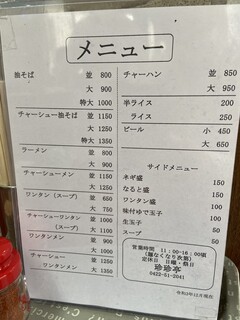 メニュー
油そば 並 800
大 900
特大 1000
チャーシュー油そば 並 1150
大 1250
特大 1350
ラーメン 並 800
大 900
チャーシューメン 並 1150
大 1250
ワンタン(スープ) 並 650
大 750
チャーシューワンタン 並 1000
(スープ) 大 1100
ワンタンメン 並 900
大 1000
チャーシュー 並 1250
ワンタンメン 大 1350
チャーハン 並 850
大 950
半ライス 200
ライス 250
ビール 小 450
大 650
サイドメニュー
ネギ盛
なると盛
ワンタン盛
味付ゆで玉子
生玉子 50
スープ 50
営業時間 11:00-16:00頃
(麺なくなり次第)
定休日 日曜・祭日
珍珍亭
0422-51-2041